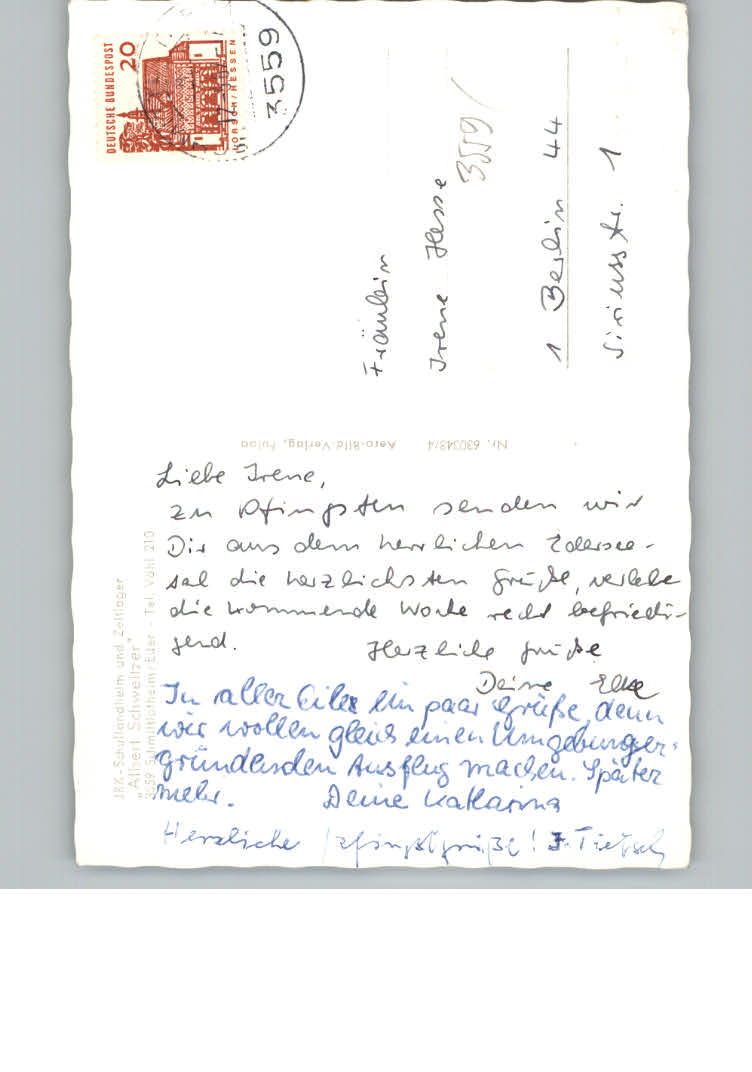 DEUTSCHE BUNDESPOST
20
LORSCH/HESSEN
3559
Fräulein
Irene Hesse
3559/
1 Berlin 44
Siriusstr. 1
Nr. 630348/4 Aero-Bild-Verlag, Fulda
JRK-Schullandheim und Zeltlager
"Albert Schweitzer"
3559 Schmittlotheim/Eder - Tel. Vöhl 210
Liebe Irene,
zu Pfingsten senden wir
Dir aus dem herrlichen Edersee-
tal die herzlichsten Grüße, verlebe
die kommende Woche recht befriedi-
gend. Herzliche Grüße
Deine Elke
In aller Eile ein paar Grüße, denn
wir wollen gleich einen Umgebunger-
gründenden Ausflug machen. Später
mehr. Deine Katharina
Herzliche Pfingstgrüße! J. Tietsch